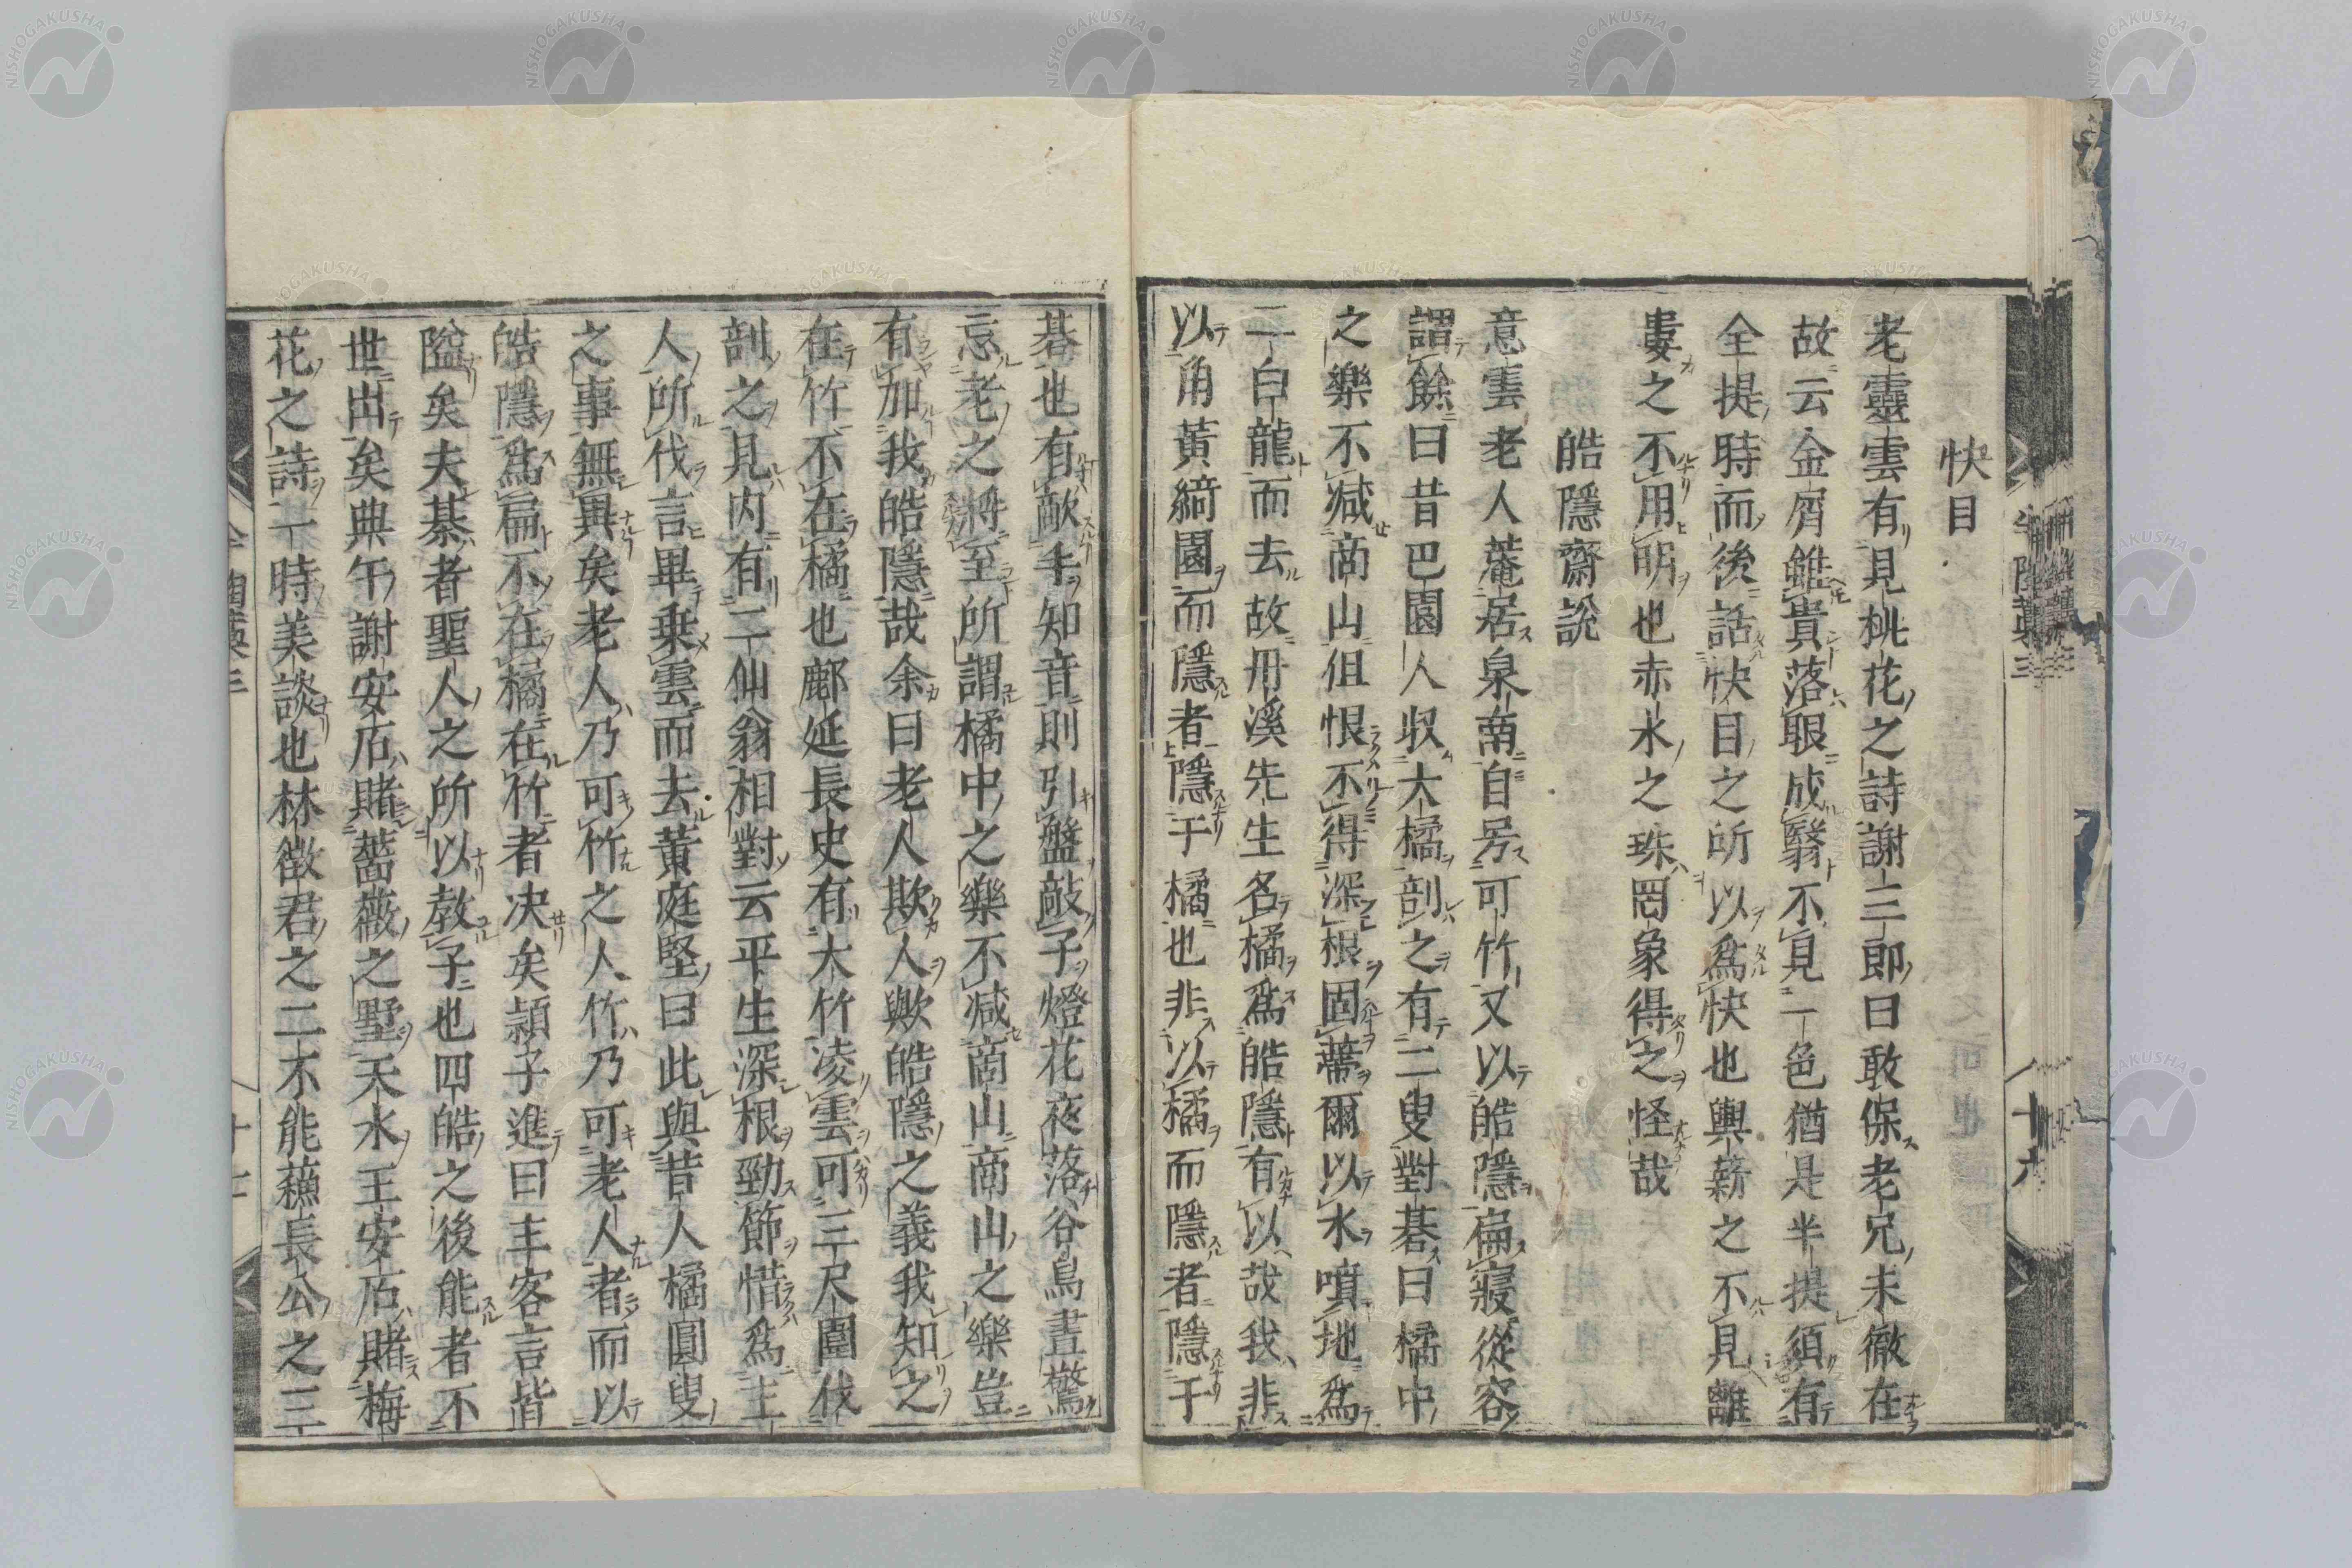 快目
老靈雲有見桃花之詩謝三郎曰敢保老兄未徹在
故云金屑雖貴落眼成翳不見一色猶是半提須有
全提時而後話快目之所以爲快也輿薪之不見離
婁之不用明也赤水之珠罔象得之怪哉
皓隱齋說
意雲老人菴居泉南自号可竹又以皓隱扁寢從容
謂餘曰昔巴園人收大橘剖之有二叟對碁曰橘中
之樂不减商山但恨不得深根固蔕爾以水噴地爲
二白龍而去故丹溪先生名橘爲皓隱有以哉我非
以角黃綺園而隱者隱于橘也非以橘而隱者隱于
碁也有敵手知音則引盤敲子燈花夜落谷鳥晝驚
忘老之將至所謂橘中之樂不减商山商山之樂豈
有加我皓隱哉余曰老人欺人歟皓隱之義我知之
在竹不在橘也鄜延長史有大竹凌雲可三尺圍伐
剖之見内有二仙翁相對云平生深根勁節惜爲主
人所伐言畢乗雲而去黃庭堅曰此與昔人橘圓叟
之事無異矣老人乃可竹之人竹乃可老人者而以
皓隱爲扁不在橘在竹者决矣頴子進曰主客言皆
隘矣夫碁者聖人之所以敎子也四皓之後能者不
世出矣典午謝安石賭薔薇之墅天水王安石賭梅
花之詩一時美談也林徵君之二不能蘓長公之三
半陶藁三
十六
十七
NISHOGAKUSHA